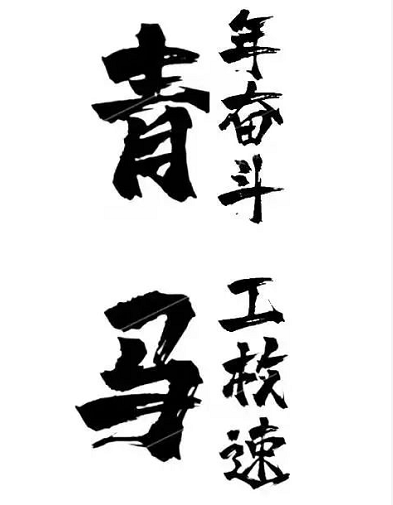 青
年奋斗
马
工枚速